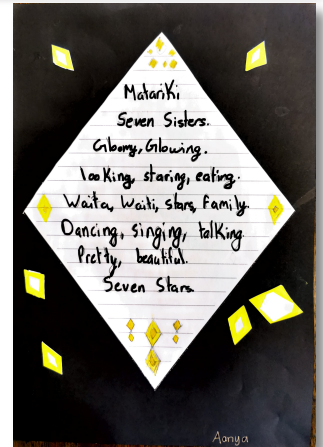 Matariki
Seven Sisters.
Gloomy, Glowing.
looking, staring, eating.
Waita, Waiti, stars, family.
Dancing, singing, talking.
Pretty, beautiful.
Seven Stars
Aanya